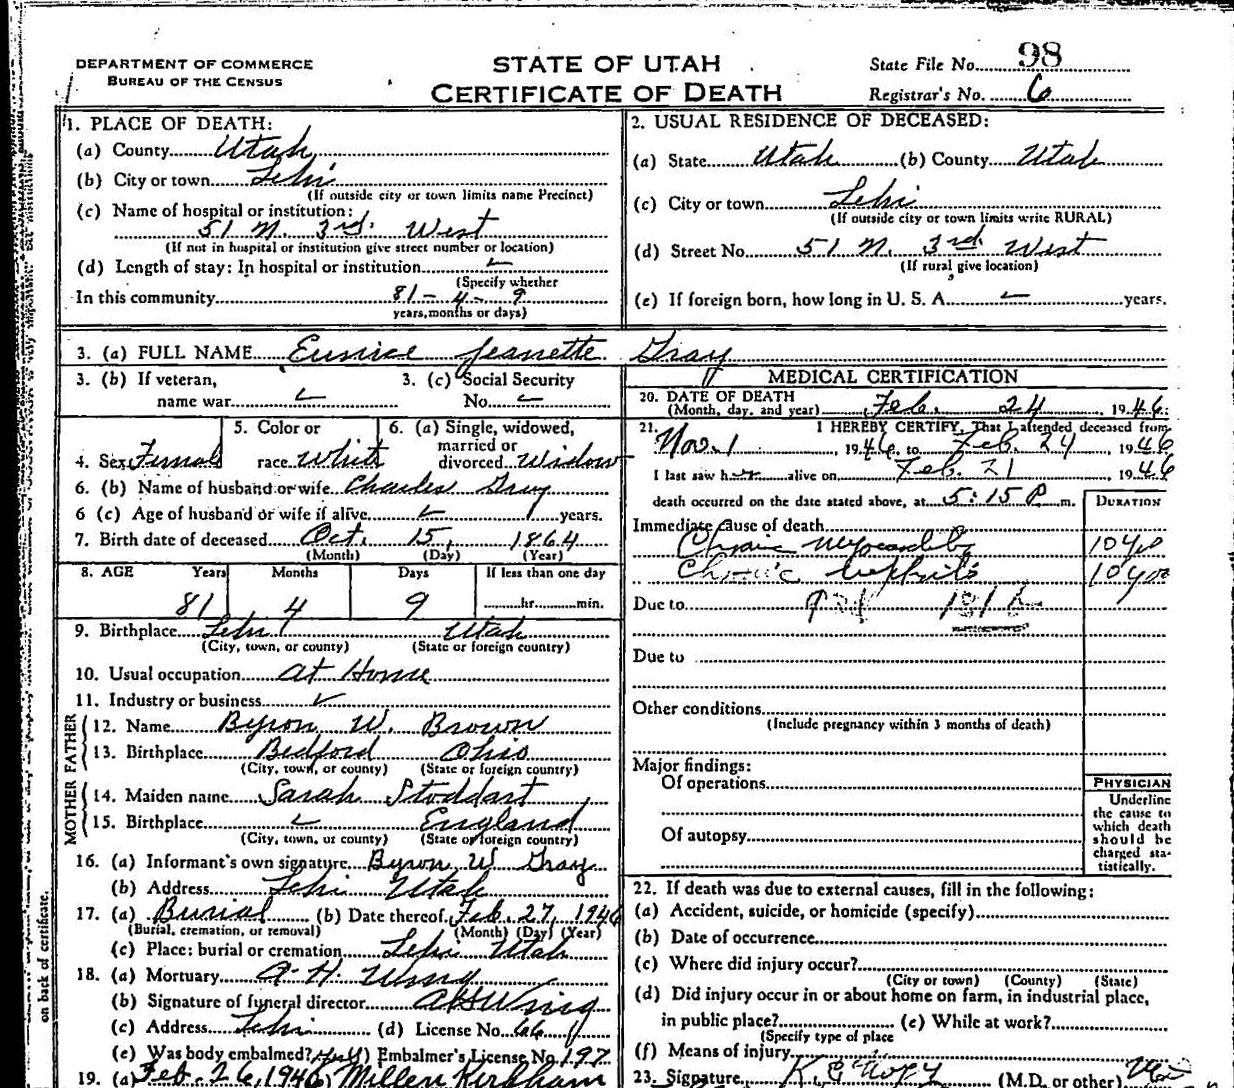 DEPARTMENT OF COMMERCE
BUREAU OF THE CENSUS
STATE OF UTAH
CERTIFICATE OF DEATH
State File No. 98
Registrar's No. 6
1. PLACE OF DEATH:
(a) County Utah
(b) City or town Lehi
(If outside city or town limits name Precinct)
(c) Name of hospital or institution:
51 N. 3rd. West
(If not in hospital or institution give street number or location)
(d) Length of stay: In hospital or institution
(Specify whether
In this community 81-4-9
years, months or days)
2. USUAL RESIDENCE OF DECEASED:
(a) State Utah (b) County Utah
(c) City or town Lehi
(If outside city or town limits write RURAL)
(d) Street No. 51 N. 3rd. West
(If rural give location)
(e) If foreign born, how long in U. S. A. years.
3. (a) FULL NAME Eunice Jeanette Gray
3. (b) If veteran,
name war
3. (c) Social Security
No.
4. Sex Female
5. Color or
race White
6. (a) Single, widowed,
married or
divorced Widow
6. (b) Name of husband or wife Charles Gray
6 (c) Age of husband or wife if alive years.
7. Birth date of deceased Oct. 15, 1864
(Month) (Day) (Year)
8. AGE Years Months Days If less than one day
81 4 9 hr. min.
9. Birthplace Lehi Utah
(City, town, or county) (State or foreign country)
10. Usual occupation At Home
11. Industry or business
FATHER
12. Name Byron W. Brown
13. Birthplace Bedford Ohio
(City, town, or county) (State or foreign country)
MOTHER
14. Maiden name Sarah Stoddart
15. Birthplace England
(City, town, or county) (State or foreign country)
16. (a) Informant's own signature Byron W Gray
(b) Address Lehi Utah
17. (a) Burial (b) Date thereof Feb. 27, 1946
(Burial, cremation, or removal) (Month) (Day) (Year)
(c) Place: burial or cremation Lehi Utah
18. (a) Mortuary A. H. Wing
(b) Signature of funeral director A H Wing
(c) Address Lehi (d) License No. 66
(e) Was body embalmed? Embalmer's License No. 197
19. (a) Feb. 26, 1946 Millen Kirkham
on back of certificate.
MEDICAL CERTIFICATION
20. DATE OF DEATH
(Month, day, and year) Feb. 24, 1946
21. I HEREBY CERTIFY, That I attended deceased from
Nov. 1, 1946, to Feb. 24, 1946
I last saw her alive on Feb. 21, 1946
death occurred on the date stated above, at 5:15 P m.
DURATION
Immediate cause of death
Chronic myocarditis 10 yrs
Chronic nephritis 10 yrs
Due to
Due to
Other conditions
(Include pregnancy within 3 months of death)
Major findings:
Of operations
Of autopsy
PHYSICIAN
Underline
the cause to
which death
should be
charged sta-
tistically.
22. If death was due to external causes, fill in the following:
(a) Accident, suicide, or homicide (specify)
(b) Date of occurrence
(c) Where did injury occur?
(City or town) (County) (State)
(d) Did injury occur in or about home on farm, in industrial place,
in public place? (e) While at work?
(Specify type of place
(f) Means of injury
23. Signature (M.D. or other)